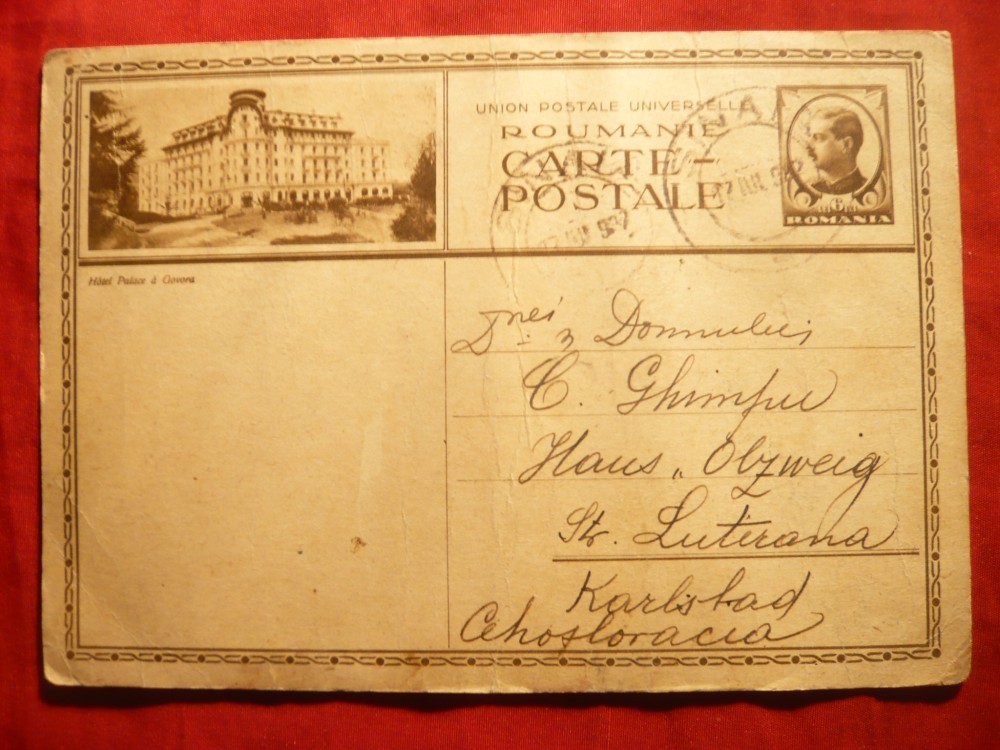 UNION POSTALE UNIVERSELLE
ROUMANIE
CARTE-
POSTALE
6 LEI
ROMANIA
Hôtel Palace à Govora
Dnei Domnului
C. Ghimpu
Haus „Olzweig
Str. Luterana
Karlsbad
Cehoslovacia